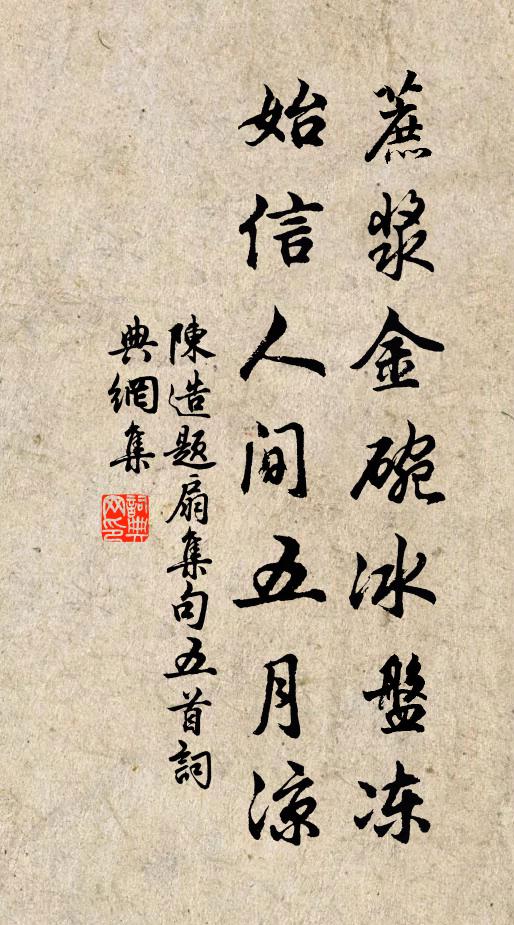 蔗漿金碗冰盤凍
始信人间五月凉
陳造題扇集句五首詞
典網集
詞典网印